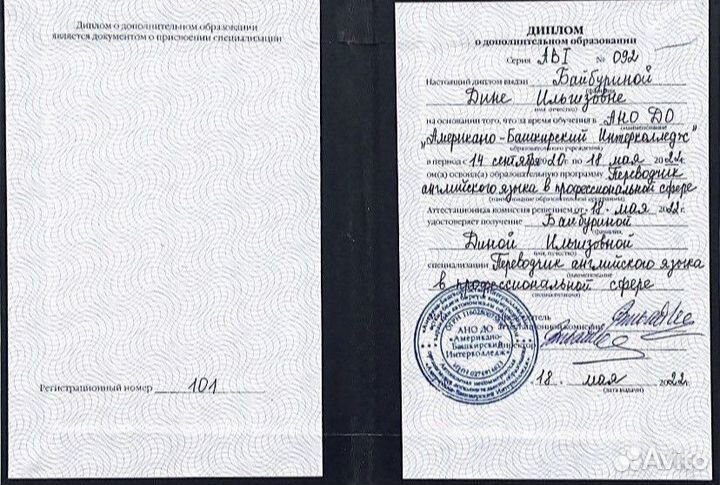 Диплом о дополнительном образовании
является документом о присвоении специализации
Регистрационный номер 101
ДИПЛОМ
о дополнительном образовании
Серия АБІ № 092
Настоящий диплом выдан Байбуриной
(фамилия,
Дине Ильгизовне
имя, отчество)
на основании того, что за время обучения в АНО ДО
(наименование
"Американо-Башкирский Интерколледж"
образовательного учреждения)
в период с 14 сентября 2020г. по 18 мая 2022г.
он(а) освоил(а) образовательную программу Переводчик
английского языка в профессиональной сфере
(наименование образовательной программы)
Аттестационная комиссия решением от 18. мая 2022г.
удостоверяет получение Байбуриной
(фамилия,
Диной Ильгизовной
имя, отчество)
специализации Переводчик английского языка
(наименование
в профессиональной сфере
специализации)
Председатель
аттестационной комиссии
Директор
АНО ДО
«Американо-
Башкирский
Интерколледж»
18. мая 2022г.
(дата выдачи)
Avito